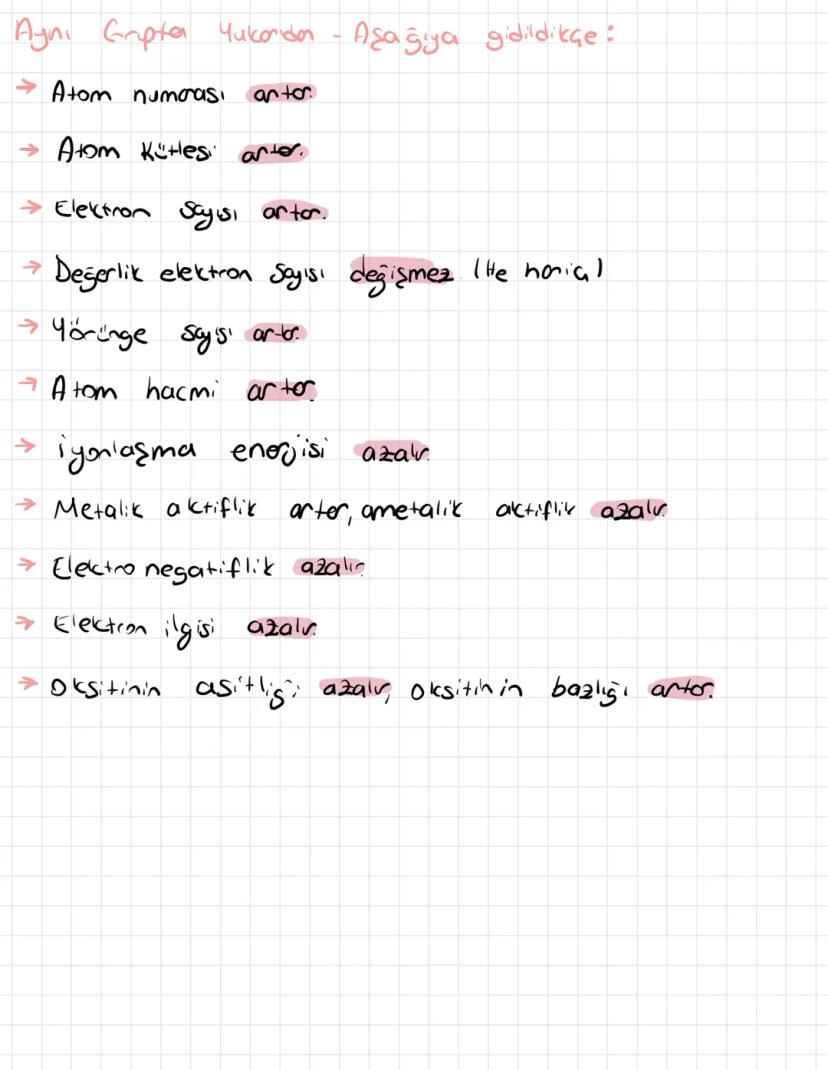 Aynı Grupta Yukarıdan - Aşağıya gidildikçe:
→ Atom numarası artar.
→ Atom Kütlesi artar.
→ Elektron sayısı artar.
→ Değerlik elektron sayısı değişmez. (He hariç)
→ Yörünge sayısı artar.
→ Atom hacmi artar.
→ İyonlaşma enerjisi azalır.
→ Metalik aktiflik artar, ametalik aktiflik azalır.
→ Elektro negatiflik azalır.
→ Elektron ilgisi azalır.
→ Oksitinin asitliği azalır, oksitinin bazlığı artar.